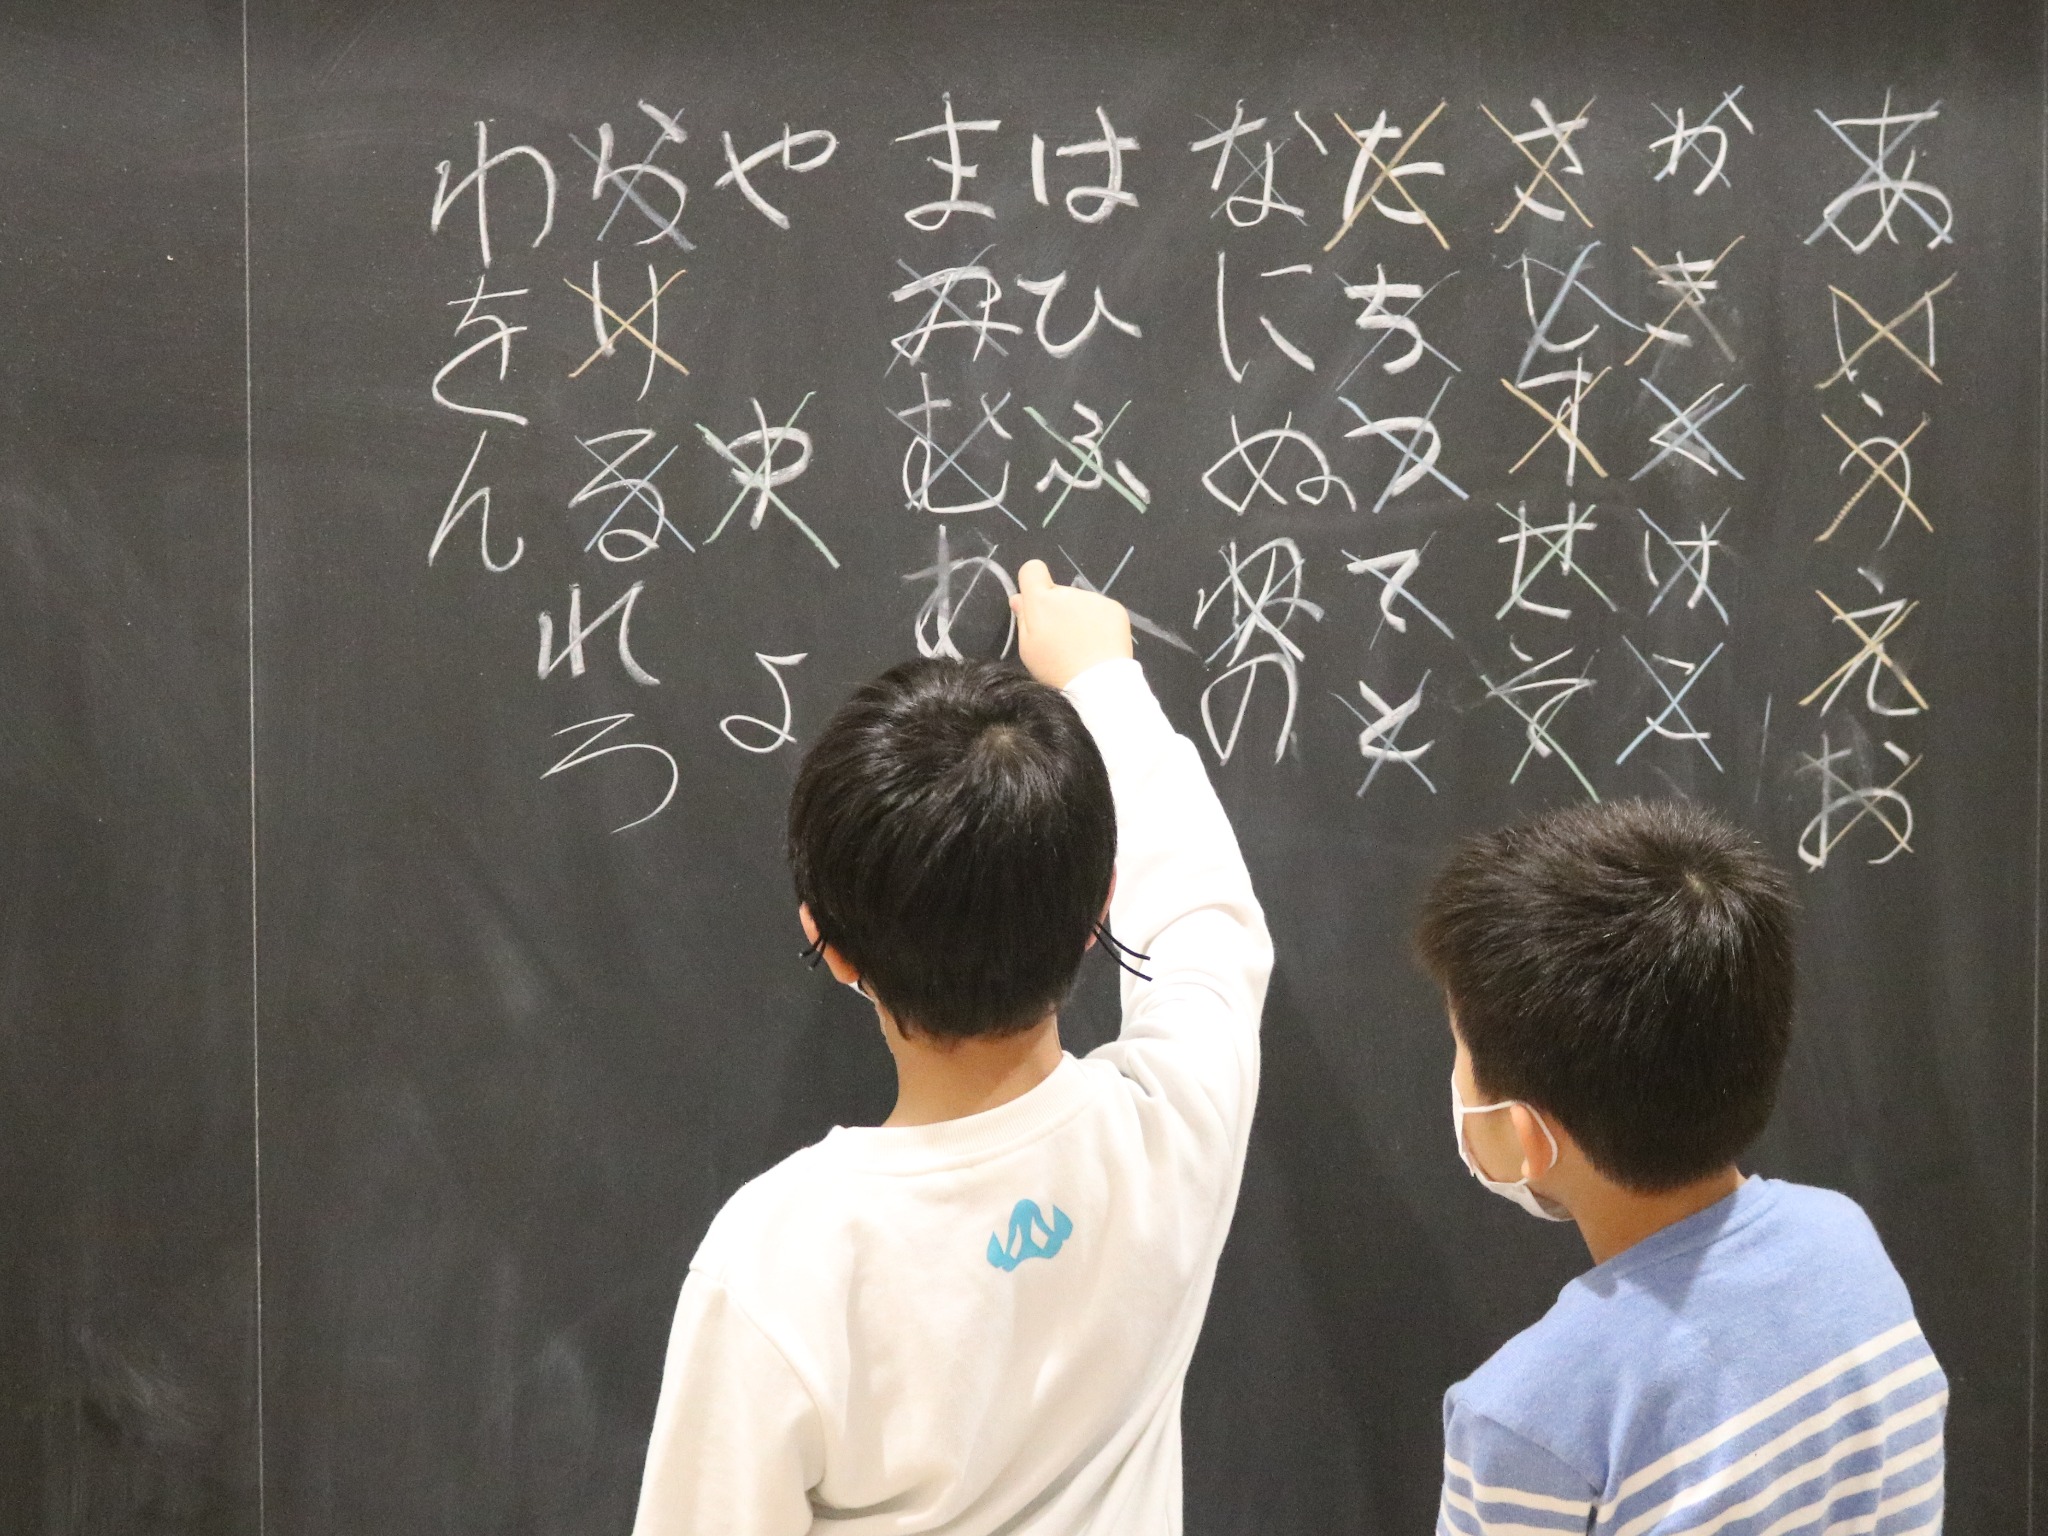 あいうえお
かきくけこ
さしすせそ
たちつてと
なにぬねの
はひふへ
まみむめ
やゆよ
らりるれろ
わをん